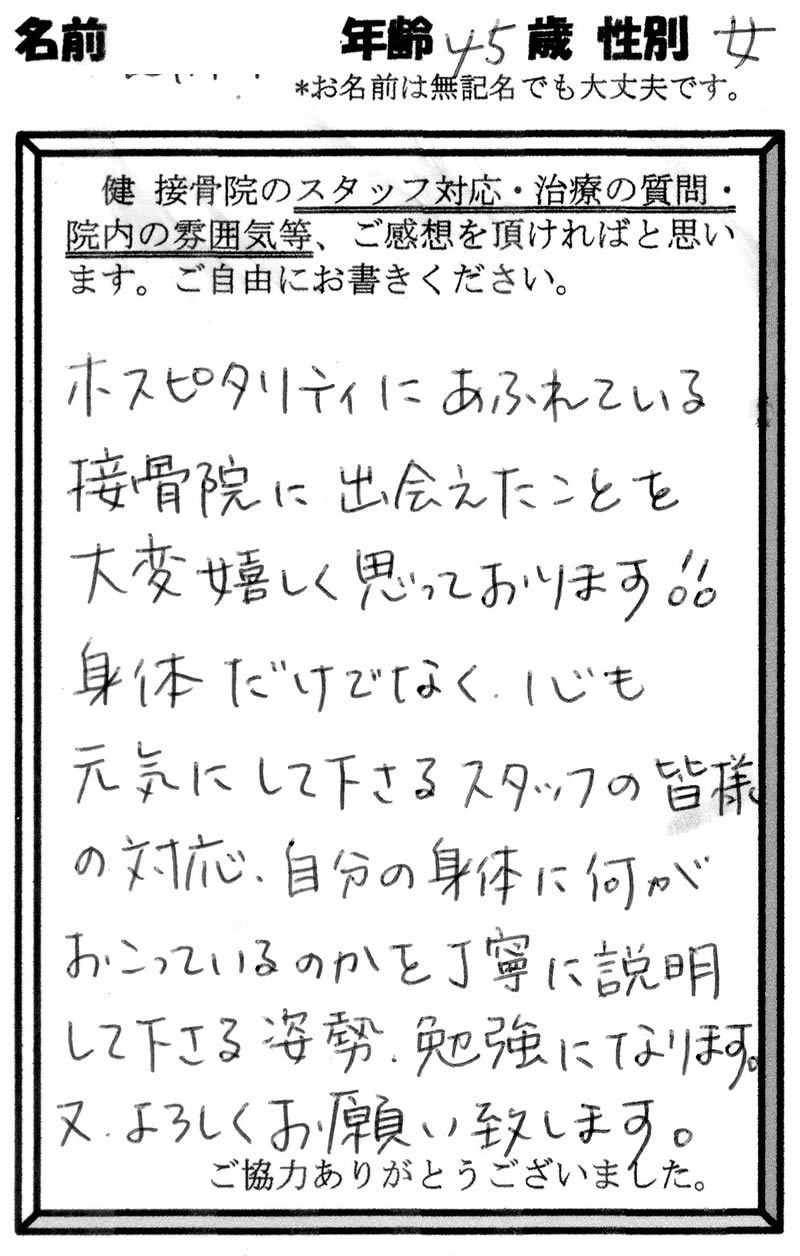 名前 年齢 45 歳 性別 女
*お名前は無記名でも大丈夫です。
健 接骨院のスタッフ対応・治療の質問・
院内の雰囲気等、ご感想を頂ければと思い
ます。ご自由にお書きください。
ホスピタリティにあふれている
接骨院に出会えたことを
大変嬉しく思っております!!
身体だけでなく、心も
元気にして下さるスタッフの皆様
の対応、自分の身体に何が
おこっているのかを丁寧に説明
して下さる姿勢、勉強になります。
又、よろしくお願い致します。
ご協力ありがとうございました。